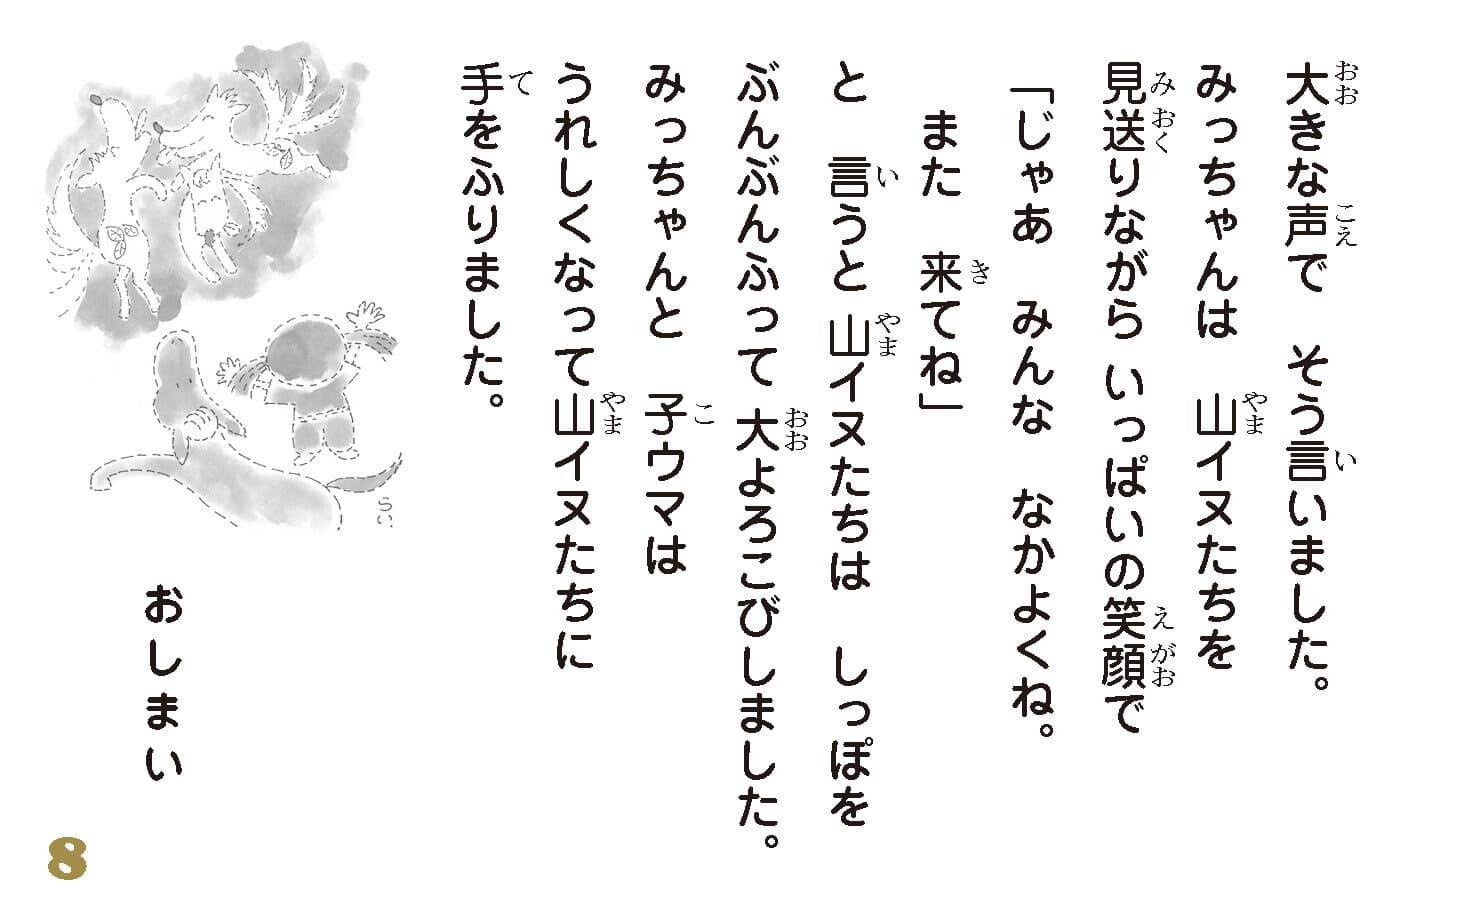 大きな声で　そう言いました。
みっちゃんは　山イヌたちを
見送りながら いっぱいの笑顔で
「じゃあ　みんな　なかよくね。
また　来てね」
と　言うと 山イヌたちは　しっぽを
ぶんぶんふって 大よろこびしました。
みっちゃんと　子ウマは
うれしくなって山イヌたちに
手をふりました。
おしまい
らい.
8